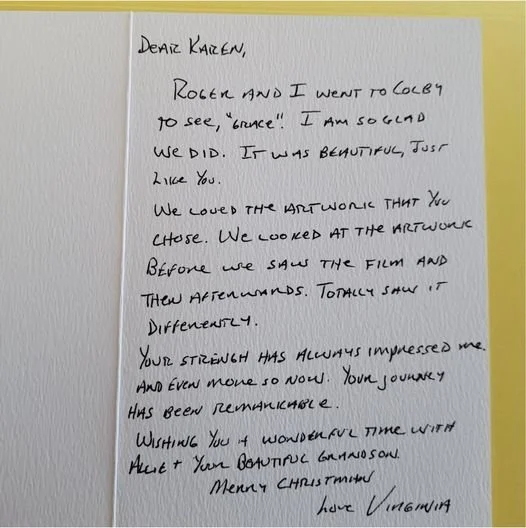 DEAR KAREN,
ROGER AND I WENT TO COLBY
TO SEE, "GRACE". I AM SO GLAD
WE DID. IT WAS BEAUTIFUL, JUST
LIKE YOU.
WE LOVED THE ARTWORK THAT YOU
CHOSE. WE LOOKED AT THE ARTWORK
BEFORE WE SAW THE FILM AND
THEN AFTERWARDS. TOTALLY SAW IT
DIFFERENTLY.
YOUR STRENGH HAS ALWAYS IMPRESSED ME.
AND EVEN MORE SO NOW. YOUR JOURNEY
HAS BEEN REMARKABLE.
WISHING YOU A WONDERFUL TIME WITH
ALLIE + YOUR BEAUTIFUL GRANDSON.
MERRY CHRISTMAS
LOVE VIRGINIA